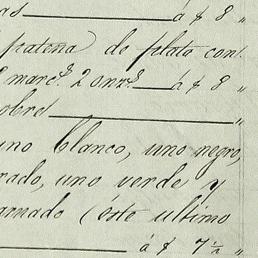 as á $ 8 „
patena de plata con
marc.s 2 onz.s á $ 8 „
obre
uno blanco, uno negro,
rado, uno verde y
armado (éste ultimo
á $ 7 ½ „